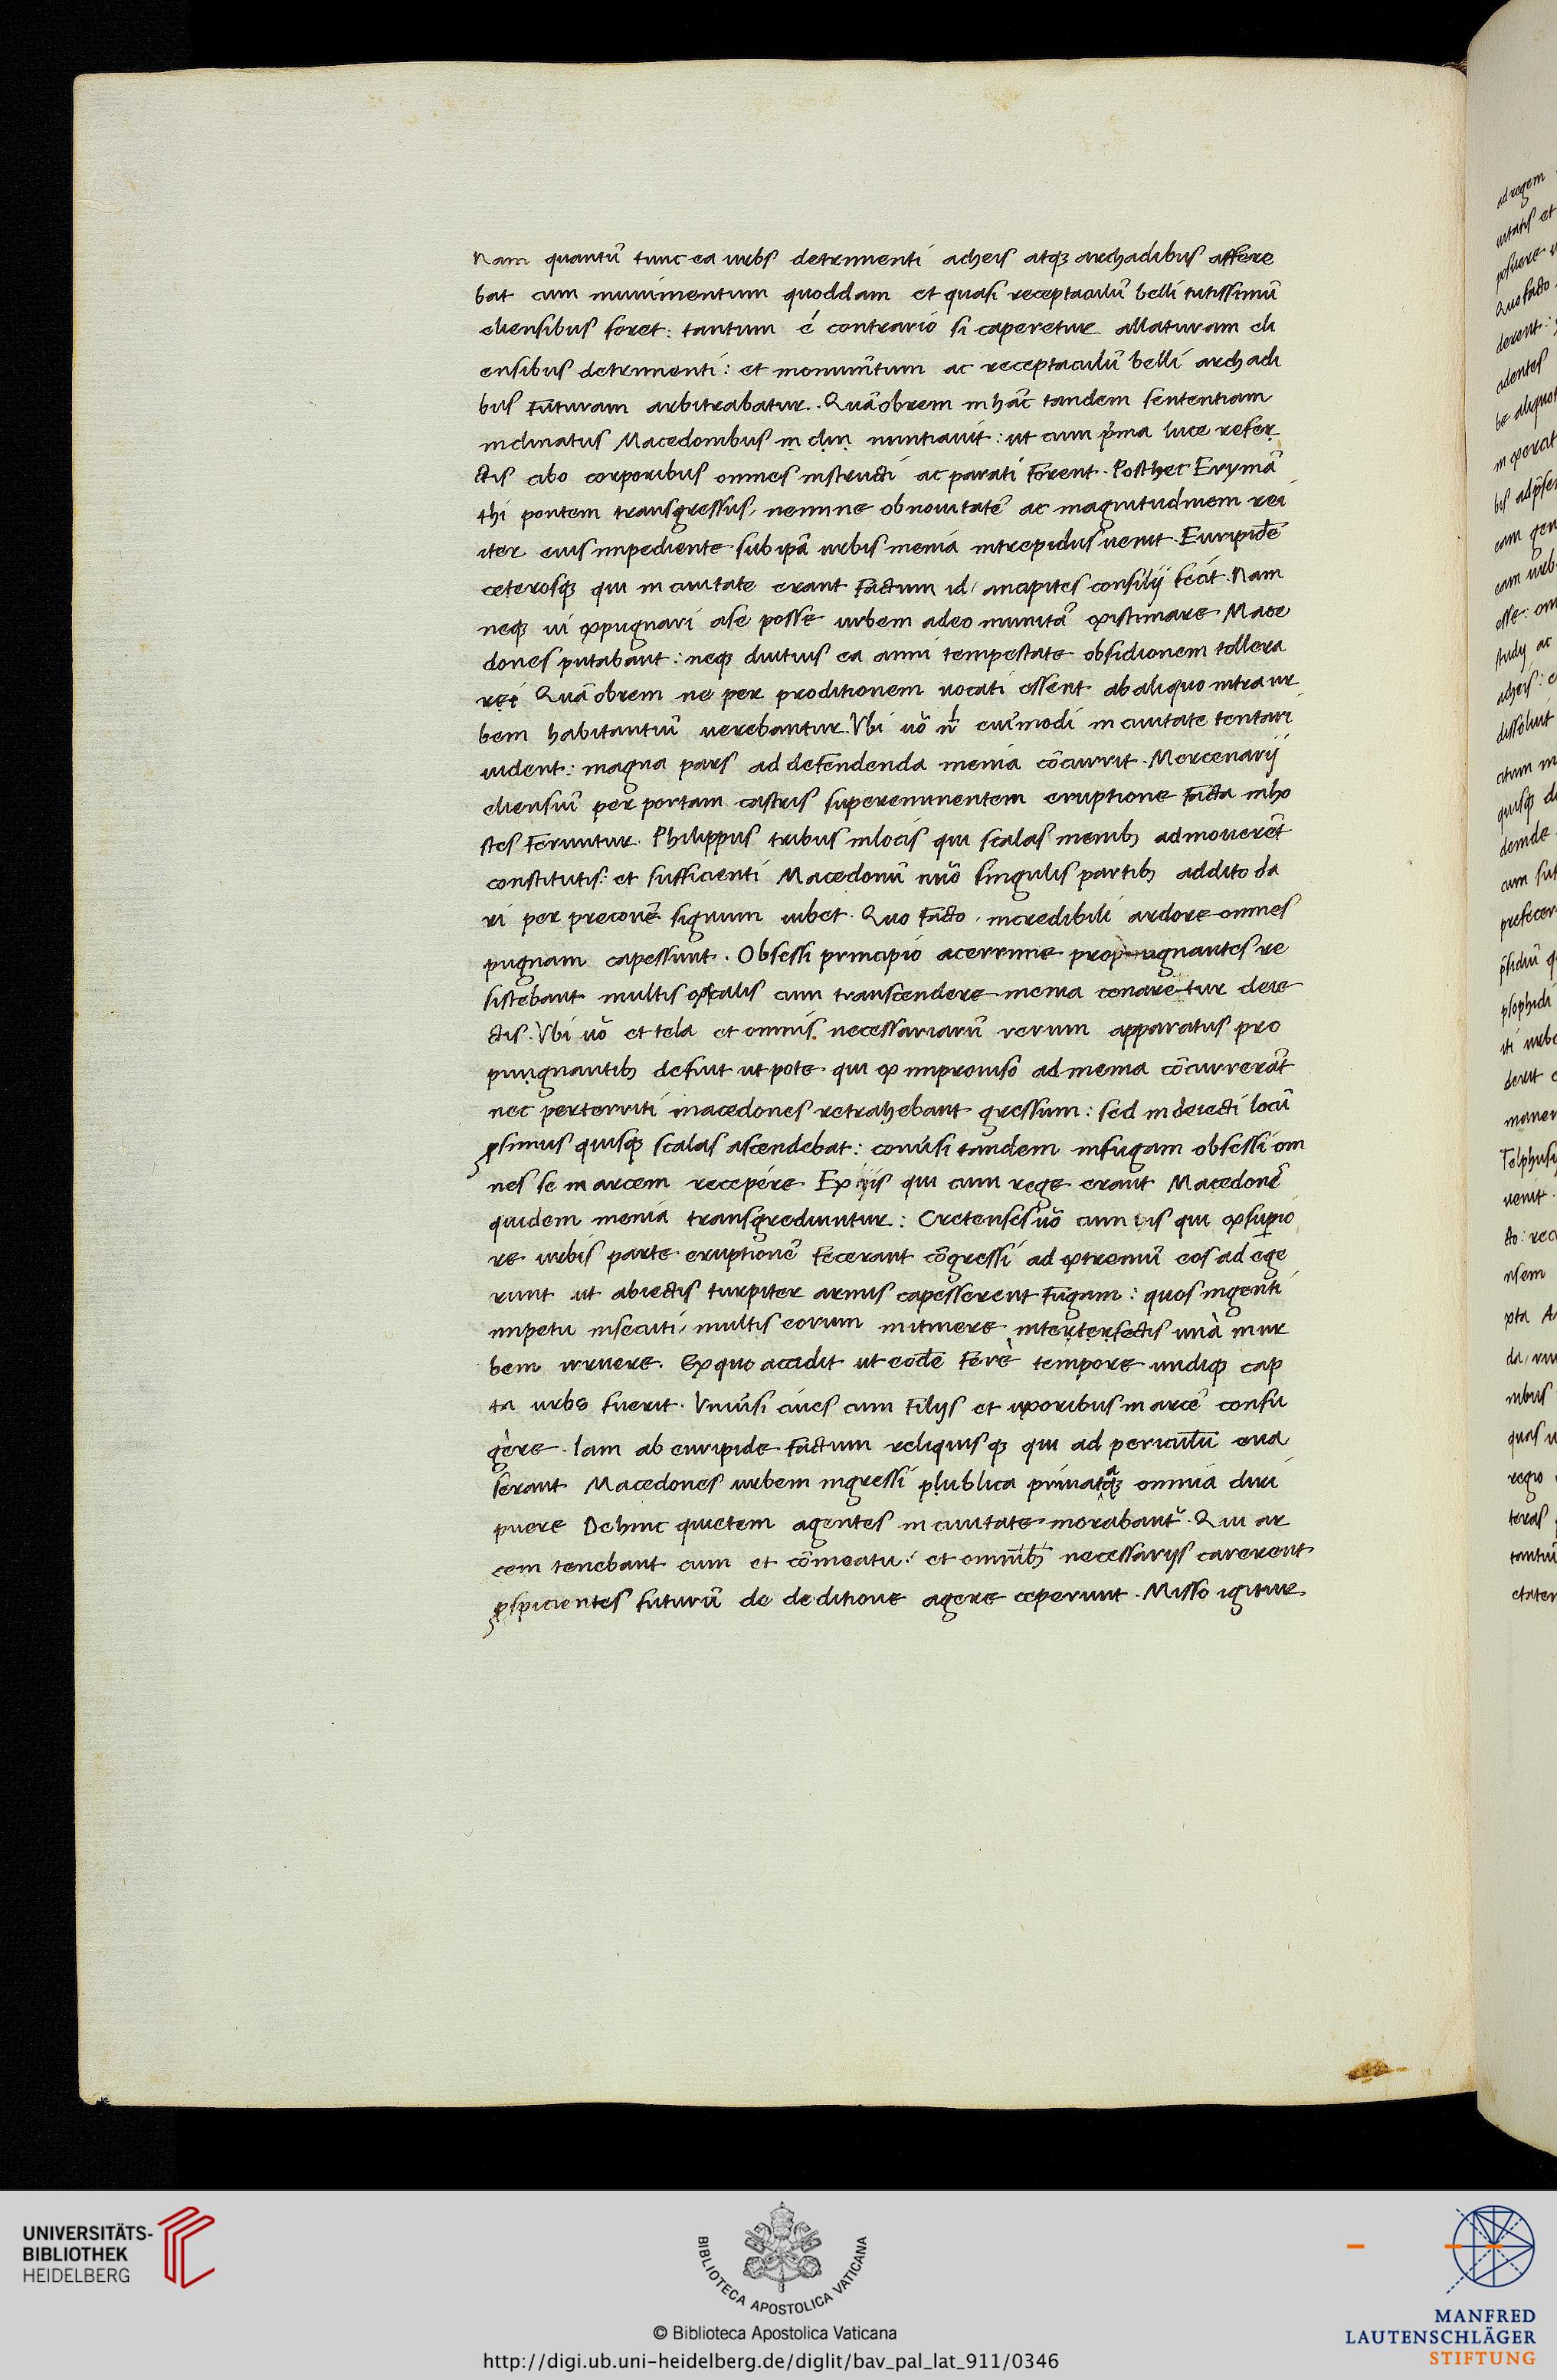 Nam quantũ tunc ea urbs detrimenti acheis atqȝ archadibus affere
bat cum munimentum quoddam et quasi receptaculũ belli tutissimũ
eliensibus foret: tantum é contrario si caperetur allaturam eli
ensibus detrimenti: et monumẽtum ac receptaculũ belli archadi
bus futuram arbitrabatur. Quãobrem in hãc tandem sententiam
inclinatus Macedonibus nuntiauit: ut cum p̃ma luce refer
ctis cibo corporibus omnes instructi ac parati forent. Posthec Erymã
thi pontem transgressus, nemine ob nouitatẽ ac magnitudinem rei
iter eius impediente sub ipã urbis menia intrepidus uenit. Euripidẽ
ceterosqȝ qui in ciuitate erant factum id, ancipites consilij fecit. Nam
neqȝ ui expugnari a se posse urbem adeo munitã existimare Mace
dones putabant: neqȝ diutius ea anni tempestate obsidionem tollera
rei Quãobrem ne per proditionem uocati essent ab aliquo intra ur
bem habitantiũ uerebantur. Vbi uõ eiu᾽modi in ciuitate tentari
uident: magna pars ad defendenda menia cõcurrit. Mercenarij
eliensiũ per portam castris supereminentem eruptione facta in ho
stes feruntur. Philippus tribus in locis qui scalas menibȝ admouerẽt
constitutis: et sufficienti Macedonũ nũo singulis partibȝ addito da
ri per preconẽ signum iubet. Quo facto, incredibili ardore omnes
pugnam capessunt. Obsessi principio acerrime propugnantes re
sistebant multis exscalis cum transcendere menia conarentur deie
ctis. Vbi uõ et tela et omnis necessariarũ rerum apparatus pro
pungnantibȝ defuit utpote qui ex improuiso ad menia cõcurrerãt
nec perterriti macedones retrahebant gressum: sed in deiecti locũ
ꝓximus quisqȝ scalas ascendebat: conuersi tandem in fugam obsessi om
nes se in arcem recepére Ex ijs qui cum rege erant Macedonẽ
quidem menia transgrediuntur: Cretenses uõ cum iis qui ex supio
re urbis parte eruptionẽ fecerant cõgressi ad extremũ eos ad ege
runt ut abiectis turpiter armis capesserent fugam: quos ingenti
impetu insecuti, multis eorum in itinere interterfectis unà in ur
bem irruere. Ex quo accidit ut eodẽ ferè tempore undiqȝ cap
ta urbs fuerit. Vniũsi ciues cum filijs et uxoribus in arcẽ confu
gère. Iam ab euripide factum reliquisqȝ qui ad periculũ eua
serant Macedones urbem ingressi plublica priuataqȝ omnia diri
puere Dehinc quietem agentes in ciuitate morabant᷑. Qui ar
cem tenebant cum et cõmeatu: et omnibȝ necessarijs carerent
ꝓspicientes futurũ de deditione agere ceperunt. Misso igitur
UNIVERSITÄTS-
BIBLIOTHEK
HEIDELBERG
BIBLIOTECA APOSTOLICA VATICANA
© Biblioteca Apostolica Vaticana
http://digi.ub.uni-heidelberg.de/diglit/bav_pal_lat_911/0346
MANFRED
LAUTENSCHLÄGER
STIFTUNG